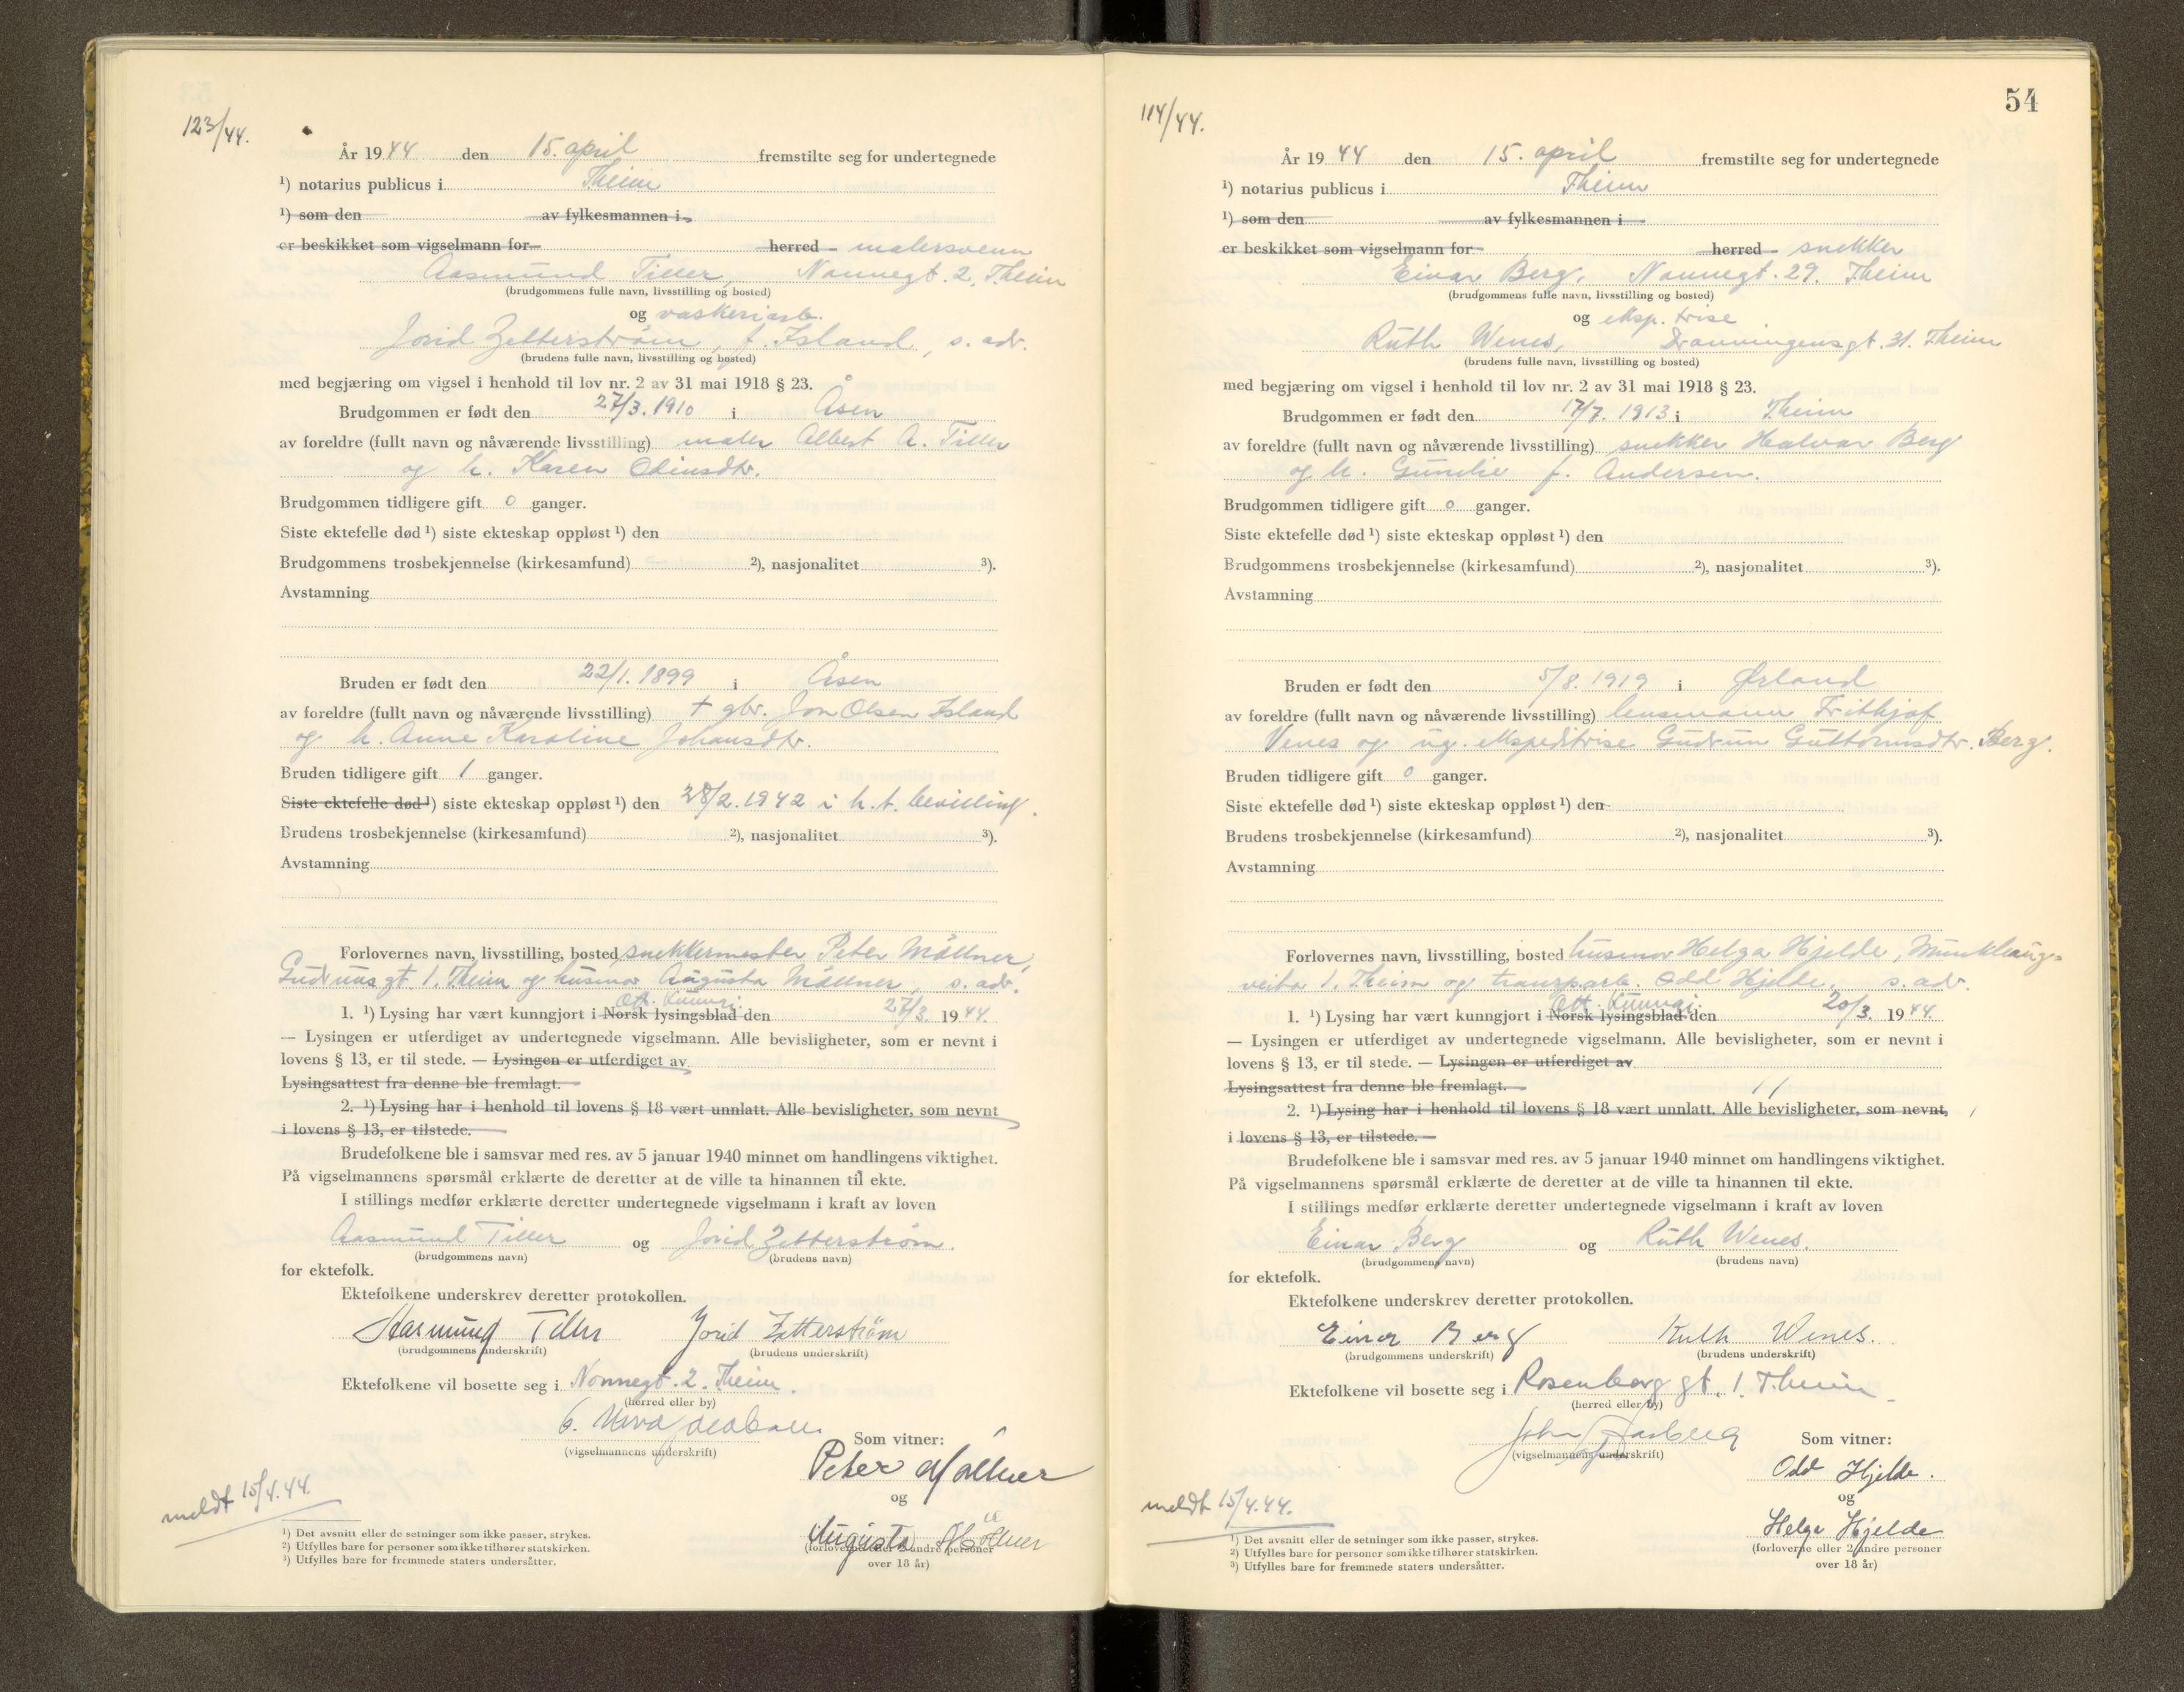 123/44.
År 1944 den 15. april fremstilte seg for undertegnede
¹) notarius publicus i Theim
¹) som den av fylkesmannen i
er beskikket som vigselmann for herred malersvenn
Aasmund Tiller, Nonnegt. 2, Theim
(brudgommens fulle navn, livsstilling og bosted)
og vaskeriarb.
Jorid Zetterström, f. Island, s. adr.
(brudens fulle navn, livsstilling og bosted)
med begjæring om vigsel i henhold til lov nr. 2 av 31 mai 1918 § 23.
Brudgommen er født den 27/3. 1910 i Åsen
av foreldre (fullt navn og nåværende livsstilling) maler Albert A. Tiller
og h. Karen Odinsdtr.
Brudgommen tidligere gift 0 ganger.
Siste ektefelle død ¹) siste ekteskap oppløst ¹) den
Brudgommens trosbekjennelse (kirkesamfund) ²), nasjonalitet ³).
Avstamning
Bruden er født den 22/1. 1899 i Åsen
av foreldre (fullt navn og nåværende livsstilling) + gbr. Jon Olsen Island
og h. Anne Karoline Johansdtr.
Bruden tidligere gift 1 ganger.
Siste ektefelle død ¹) siste ekteskap oppløst ¹) den 28/2. 1942 i h. t. bevilling.
Brudens trosbekjennelse (kirkesamfund) ²), nasjonalitet ³).
Avstamning
Forlovernes navn, livsstilling, bosted snekkermester Peter Mällner,
Gudrunsgt 1. Theim og husmor Augusta Mällner, s. adr.
Off. kunngj.
1. ¹) Lysing har vært kunngjort i Norsk lysingsblad den 27/3. 1944.
— Lysingen er utferdiget av undertegnede vigselmann. Alle bevisligheter, som er nevnt i
lovens § 13, er til stede. — Lysingen er utferdiget av
Lysingsattest fra denne ble fremlagt.
2. ¹) Lysing har i henhold til lovens § 18 vært unnlatt. Alle bevisligheter, som nevnt
i lovens § 13, er tilstede.
Brudefolkene ble i samsvar med res. av 5 januar 1940 minnet om handlingens viktighet.
På vigselmannens spørsmål erklærte de deretter at de ville ta hinannen til ekte.
I stillings medfør erklærte deretter undertegnede vigselmann i kraft av loven
Aasmund Tiller og Jorid Zetterström.
(brudgommens navn) (brudens navn)
for ektefolk.
Ektefolkene underskrev deretter protokollen.
Aasmund Tiller Jorid Zetterström
(brudgommens underskrift) (brudens underskrift)
Ektefolkene vil bosette seg i Nonnegt. 2. Theim.
(herred eller by)
(vigselmannens underskrift)
Som vitner:
Peter Mällner
og
Augusta Mällner
(forloverne eller 2 andre personer
over 18 år)
meldt 15/4.44.
¹) Det avsnitt eller de setninger som ikke passer, strykes.
²) Utfylles bare for personer som ikke tilhører statskirken.
³) Utfylles bare for fremmede staters undersåtter.
54
114/44.
År 1944 den 15. april fremstilte seg for undertegnede
¹) notarius publicus i Theim
¹) som den av fylkesmannen i
er beskikket som vigselmann for herred snekker
Einar Berg, Nonnegt. 29. Theim
(brudgommens fulle navn, livsstilling og bosted)
og eksp. trise
Ruth Wenes, Dronningensgt. 31. Theim
(brudens fulle navn, livsstilling og bosted)
med begjæring om vigsel i henhold til lov nr. 2 av 31 mai 1918 § 23.
Brudgommen er født den 17/7. 1913 i Theim
av foreldre (fullt navn og nåværende livsstilling) snekker Halvar Berg
og h. f. Andersen.
Brudgommen tidligere gift 0 ganger.
Siste ektefelle død ¹) siste ekteskap oppløst ¹) den
Brudgommens trosbekjennelse (kirkesamfund) ²), nasjonalitet ³).
Avstamning
Bruden er født den 5/8. 1919 i Ørland
av foreldre (fullt navn og nåværende livsstilling) lensmann Frithjof
Venes og ug. ekspeditrise Gudrun Guttormsdtr. Berg.
Bruden tidligere gift 0 ganger.
Siste ektefelle død ¹) siste ekteskap oppløst ¹) den
Brudens trosbekjennelse (kirkesamfund) ²), nasjonalitet ³).
Avstamning
Forlovernes navn, livsstilling, bosted husmor Helga Hjelde, Munkhaug-
veita 1. Theim og transparb. Odd Hjelde, s. adr.
Off. Kunngj.
1. ¹) Lysing har vært kunngjort i Norsk lysingsblad den 20/3. 1944.
— Lysingen er utferdiget av undertegnede vigselmann. Alle bevisligheter, som er nevnt i
lovens § 13, er til stede. — Lysingen er utferdiget av
Lysingsattest fra denne ble fremlagt.
2. ¹) Lysing har i henhold til lovens § 18 vært unnlatt. Alle bevisligheter, som nevnt,
i lovens § 13, er tilstede.
Brudefolkene ble i samsvar med res. av 5 januar 1940 minnet om handlingens viktighet.
På vigselmannens spørsmål erklærte de deretter at de ville ta hinannen til ekte.
I stillings medfør erklærte deretter undertegnede vigselmann i kraft av loven
Einar Berg og Ruth Wenes.
(brudgommens navn) (brudens navn)
for ektefolk.
Ektefolkene underskrev deretter protokollen.
Einar Berg Ruth Wenes.
(brudgommens underskrift) (brudens underskrift)
Ektefolkene vil bosette seg i Rosenborg gt. 1. Theim
(herred eller by)
John Aasberg
(vigselmannens underskrift)
Som vitner:
Odd Hjelde.
og
Helga Hjelde
(forloverne eller 2 andre personer
over 18 år)
meldt 15/4.44.
¹) Det avsnitt eller de setninger som ikke passer, strykes.
²) Utfylles bare for personer som ikke tilhører statskirken.
³) Utfylles bare for fremmede staters undersåtter.